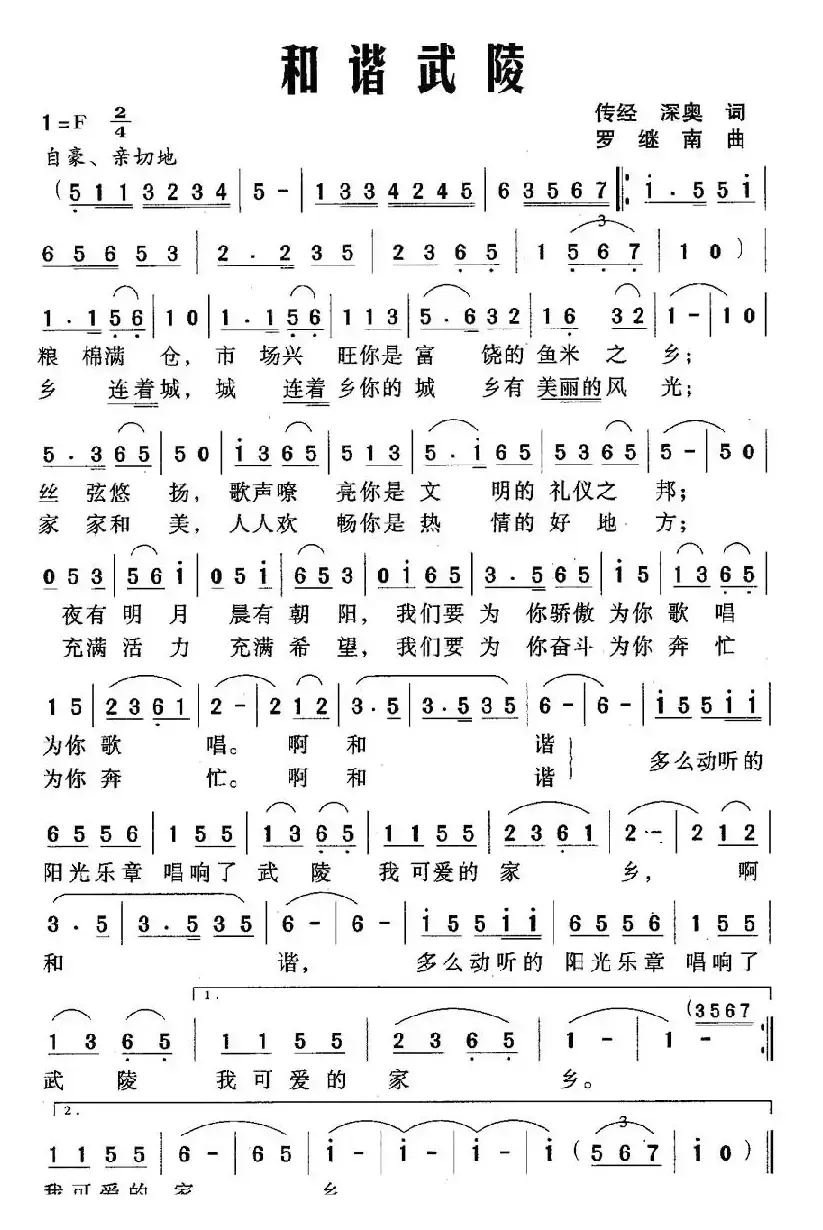 和谐武陵
1=F 2/4
传经 深奥 词
罗 继 南 曲
自豪、亲切地
(5 1 1 3 2 3 4 | 5 - | 1 3 3 4 2 4 5 | 6 3 5 6 7 ‖: i · 5 5 i
6 5 6 5 3 | 2 · 2 3 5 | 2 3 6 5 | 1 5 6 7 | 1 0 )
3
1 · 1 5 6 | 1 0 | 1 · 1 5 6 | 1 1 3 | 5 · 6 3 2 | 1 6 3 2 | 1 - | 1 0
粮 棉满 仓, 市 场兴 旺你是 富 饶的 鱼米 之 乡;
乡 连着城, 城 连着 乡你的 城 乡有 美丽的风 光;
5 · 3 6 5 | 5 0 | i 3 6 5 | 5 1 3 | 5 · i 6 5 | 5 3 6 5 | 5 - | 5 0
丝 弦悠 扬, 歌声嘹 亮你是 文 明的 礼仪之 邦;
家 家和 美, 人人欢 畅你是 热 情的 好 地 方;
0 5 3 | 5 6 i | 0 5 i | 6 5 3 | 0 i 6 5 | 3 · 5 6 5 | i 5 | 1 3 6 5
夜有 明 月 晨有 朝 阳, 我们要 为 你骄傲 为你 歌 唱
充满 活 力 充满 希 望, 我们要 为 你奋斗 为你 奔 忙
1 5 | 2 3 6 1 | 2 - | 2 1 2 | 3 · 5 | 3 · 5 3 5 | 6 - | 6 - | i 5 5 i i
为你 歌 唱。 啊 和 谐
为你 奔 忙。 啊 和 谐
多么动听的
6 5 5 6 | 1 5 5 | 1 3 6 5 | 1 1 5 5 | 2 3 6 1 | 2 - | 2 1 2
阳光乐章 唱响了 武 陵 我 可爱的 家 乡, 啊
3 · 5 | 3 · 5 3 5 | 6 - | 6 - | i 5 5 i i | 6 5 5 6 | 1 5 5
和 谐, 多么动听的 阳光乐章 唱响了
1.
1 3 6 5 | 1 1 5 5 | 2 3 6 5 | 1 - | 1 - (3 5 6 7 :‖
武 陵 我 可 爱 的 家 乡。
2.
1 1 5 5 | 6 - | 6 5 | i - | i - | i - | i (5 6 7 | i 0 ) ‖
3
我可爱的 家 乡